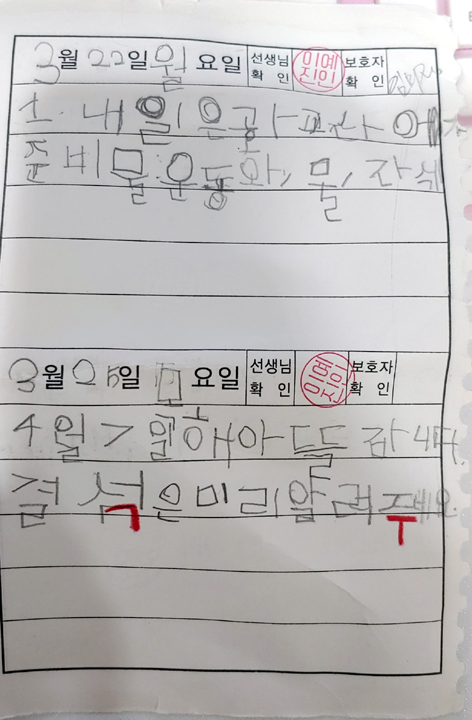 3월 22일 월요일 선생님 확인 이예진인 보호자 확인
1. 내일은 공
준비물: 운동화, 물, 간식
3월 25일 목요일 선생님 확인 이예진인 보호자 확인
4월 7일 해아 들 갑니다.
결석은 미리 알려주세요.